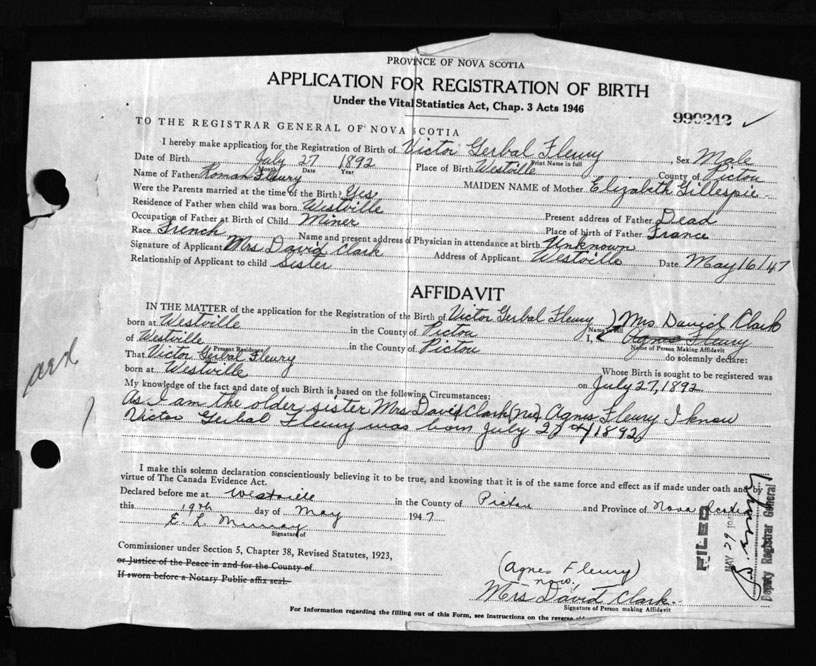 PROVINCE OF NOVA SCOTIA
APPLICATION FOR REGISTRATION OF BIRTH
Under the Vital Statistics Act, Chap. 3 Acts 1946
990242 ✓
TO THE REGISTRAR GENERAL OF NOVA SCOTIA
I hereby make application for the Registration of Birth of Victor Gerbal Fleury Sex Male
Print Name in full
Date of Birth July 27 1892 Place of Birth Westville County of Pictou
Month Date Year
Name of Father Roman Fleury MAIDEN NAME of Mother Elizabeth Gillespie
Were the Parents married at the time of the Birth? Yes
Residence of Father when child was born Westville Present address of Father Dead
Occupation of Father at Birth of Child Miner Place of birth of Father France
Race French Name and present address of Physician in attendance at birth Unknown
Signature of Applicant Mrs David Clark Address of Applicant Westville Date May 16/47
Relationship of Applicant to child Sister
AFFIDAVIT
IN THE MATTER of the application for the Registration of the Birth of Victor Gerbal Fleury Mrs. David Clark
born at Westville in the County of Pictou I, Agnes Fleury
Name of Person Making Affidavit
of Westville in the County of Pictou do solemnly declare:
Present Residence
That Victor Gerbal Fleury Whose Birth is sought to be registered was
born at Westville on July 27, 1892
My knowledge of the fact and date of such Birth is based on the following Circumstances:
As I am the older sister Mrs David Clark (Nee) Agnes Fleury I know
Victor Gerbal Fleury was born July 27 1892
I make this solemn declaration conscientiously believing it to be true, and knowing that it is of the same force and effect as if made under oath and by
virtue of The Canada Evidence Act.
Declared before me at Westville in the County of Pictou and Province of Nova Scotia
this 19th day of May 1947
E. L. Murray
Signature of
Commissioner under Section 5, Chapter 38, Revised Statutes, 1923,
or Justice of the Peace in and for the County of
If sworn before a Notary Public affix seal.
(Agnes Fleury)
now,
Mrs David Clark.
Signature of Person making Affidavit
For Information regarding the filling out of this Form, see instructions on the reverse
FILED
MAY 29
Deputy Registrar General